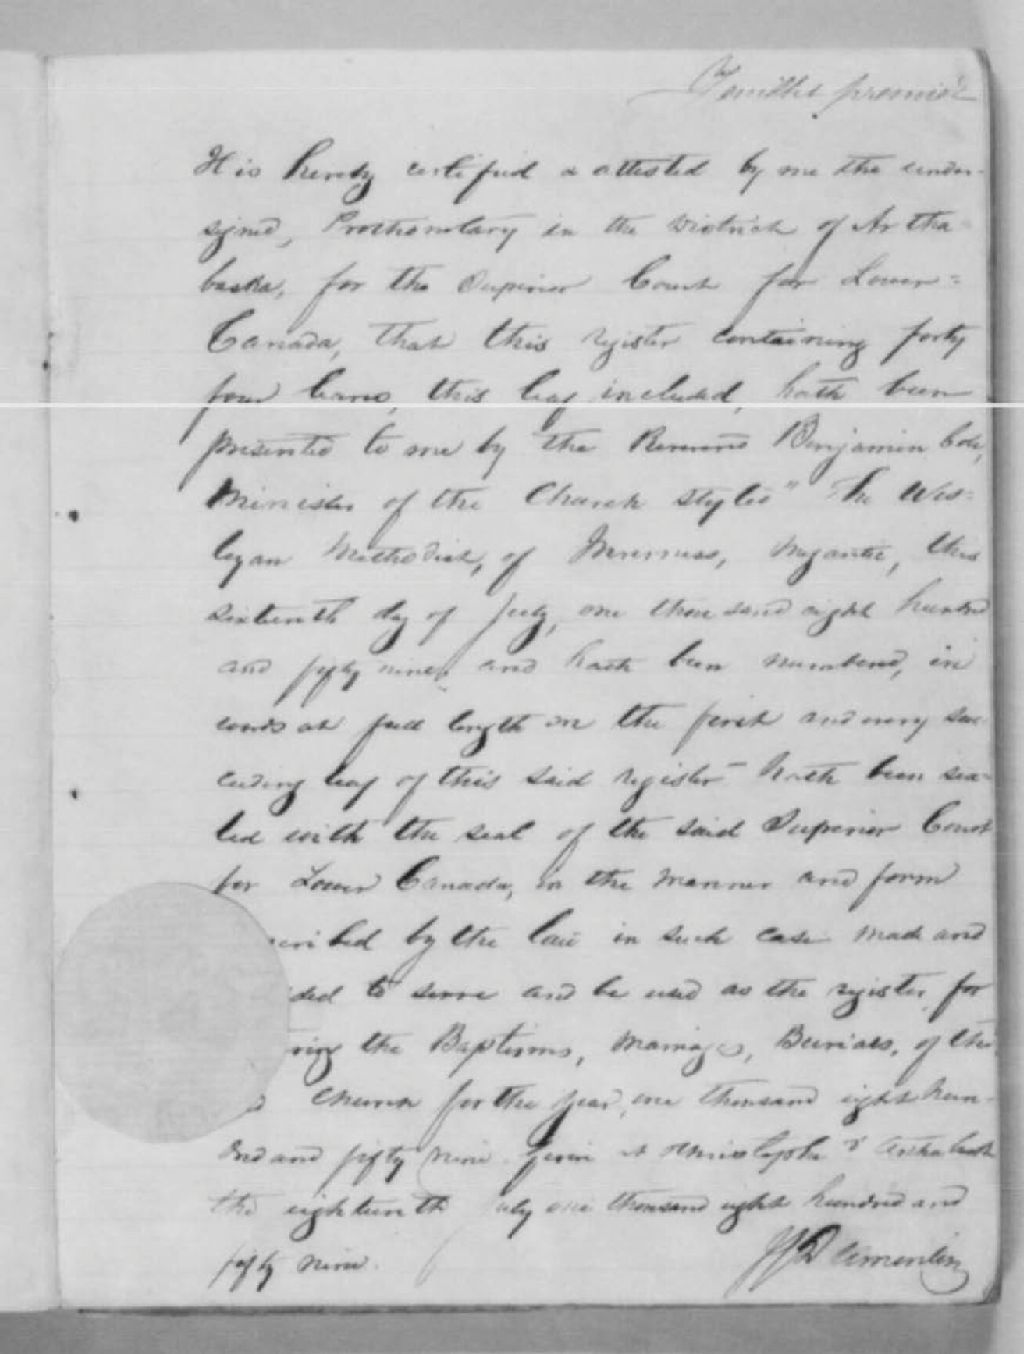 Feuillet premier
It is hereby certified & attested by me the under-
signed, Prothonotary in the District of Artha-
baska, for the Superior Court for Lower-
Canada, that this register containing forty
four leaves, this leaf included, hath been
presented to me by the Reverend Benjamin Cole,
Minister of the Church styled "The Wes-
leyan Methodist, of Inverness, Megantic, this
sixteenth day of July, one thousand eight hundred
and fifty nine, and hath been numbered, in
words at full length on the first and every suc-
ceeding leaf of this said register hath been sea-
led with the seal of the said Superior Court
for Lower Canada, in the manner and form
cribed by the law in such case made and
ided to serve and be used as the register for
ring the Baptisms, Marriages, Burials, of the
d Church for the year, one thousand eight hun-
dred and fifty nine. Given at St Christophe d' Arthabaska
the eighteenth July one thousand eight hundred and
fifty nine.